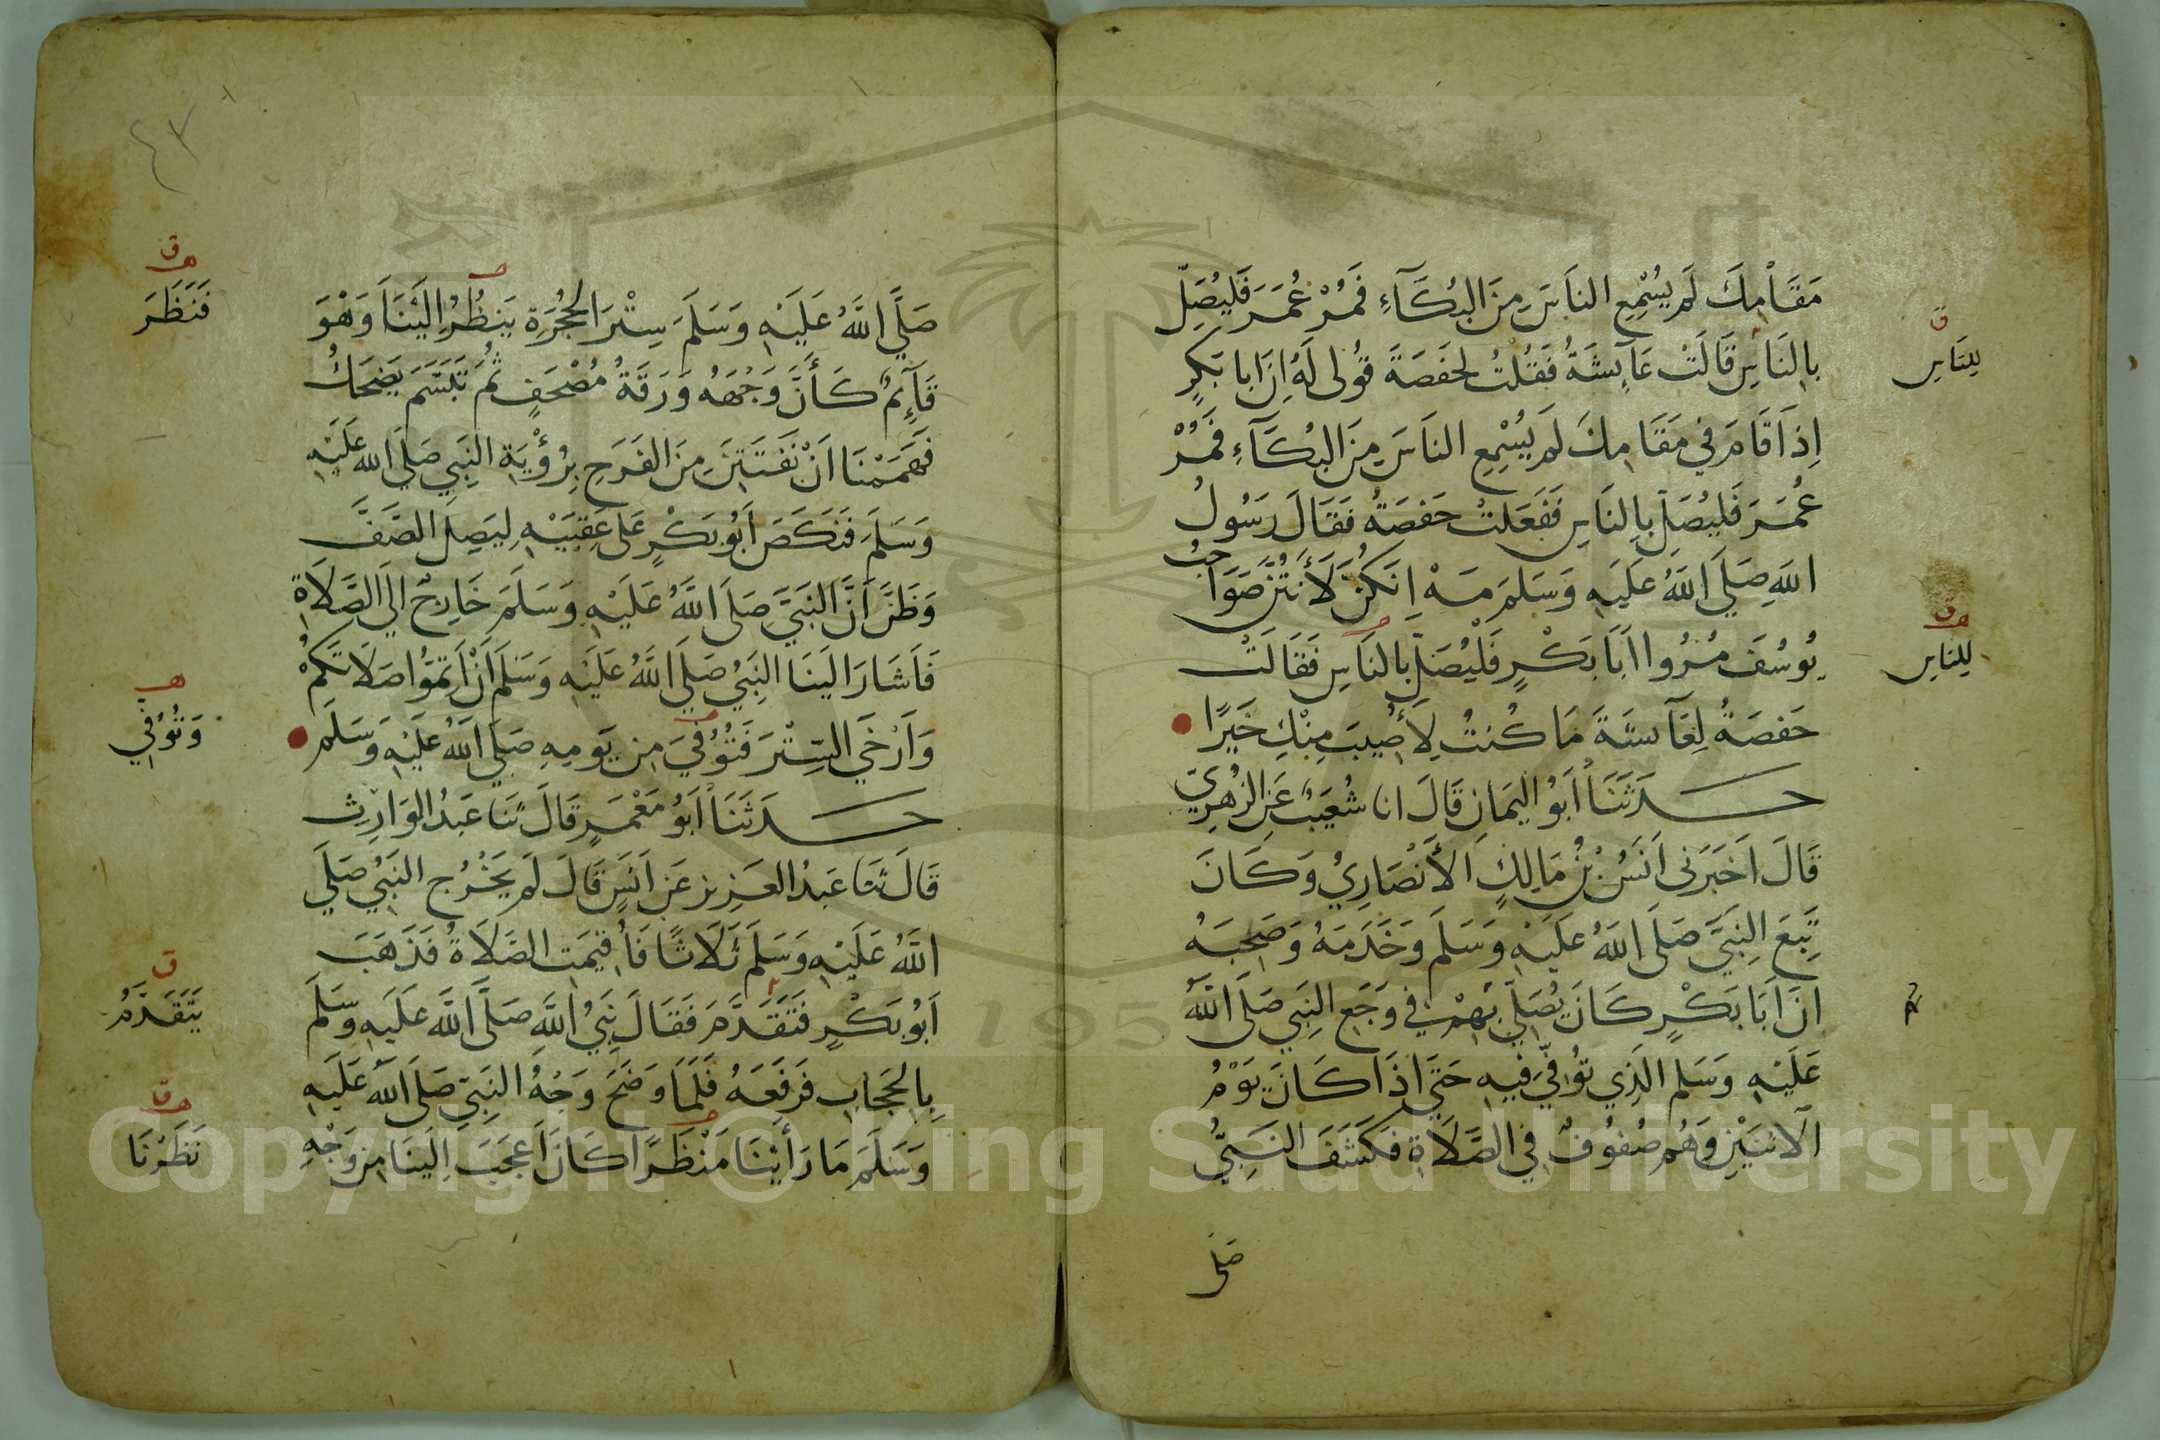 مَقَامِكَ لَم يُسْمِعِ النَاسَ مِنَ البُكَآءِ فَمُرْ عُمَرَ فَليُصَلِّ
بِالنَاسِ قَالَتْ عَآئِشَةُ فَقُلتُ لِحَفصَةَ قُولى لَهُ اِنَ ابا بَكرٍ
اِذَا قَامَ فِي مَقَامِكَ لَم يُسْمِعِ الناَسَ مِنَ البُكَآءِ فَمُرْ
عُمَرَ فَليُصَلِّ بِالنَاسِ فَفَعَلتْ حَفصَةُ فَقَالَ رَسُولُ
اللهِ صَلَي اللهُ عَلَيهِ وَسَلَمَ مَهْ اِنَكُنَّ لَأَنتُنَّ صَوَاحِبُ
يُوسُفَ مُرُوا اَبَا بَكْرٍ فَلْيُصَلِّ بِالنَاسِ فَقَالَتْ
حَفصَةُ لِعَآئشَةَ مَا كُنتُ لِأُصِيبَ مِنْكِ خَيرًا
حَدَثَنَا اَبُو اليَمَانِ قَالَ انا شُعَيبٌ عَنِ الزُهرِيِّ
قَالَ اَخبَرَنى اَنَسُ بْنُ مَالِكٍ الأَنْصَارِيُ وَكَانَ
تَبِعَ النَبِيَّ صَلَى اللهُ عَلَيْهِ وَسَلَمَ وَخَدَمَهُ وَصَحِبَهُ
اَنَ اَبَا بَكْرٍ كَانَ يُصَلِي بِهِمْ فِي وَجَعِ النَبِي صَلَى اللهُ
عَلَيْهِ وَسَلم الَذِي تُوُفِّيَ فِيهِ حَتَي اِذَا كَانَ يَوْمُ
الاثنَيْنِ وَهُم صُفوُفٌ فِي الصَّلَاةِ فكَشَفَ النَبِيُّ
صَلى
لِلنَاسِ
ق
لِلنَاسِ
ه ق
صَلَّي اللهُ عَلَيْهِ وَسَلَمَ سِتْرَ الحُجْرَةِ يَنظُرُ اِلَيْنَا وَهْوَ
قَآئِمٌ كَأَنَّ وَجْهَهُ وَرَقَةُ مُصْحَفٍ ثُمَ تَبَسَّمَ يَضحَكُ
فَهَمَمْنَا اَنْ نَفْتَتِنَ مِنَ الفَرَحِ بِرُؤْيَةِ النَبِي صَلَي الله عَلَيْهِ
وَسَلَمَ فَنَكَصَ اَبُو بَكْرٍ عَلى عَقِبَيْهِ لِيَصِلَ الصَّفَّ
وَظَنَّ اَنَّ النَبِيَّ صَلَى اللهُ عَلَيْهِ وَسَلَمَ خَارِجٌ اِلَي الصَّلَاةِ
فَاَشَارَ اِلَينَا النَبِيُ صَلَي اللهُ عَلَيْهِ وَسَلَم اَنْ اَتِمُّوا صَلَاتَكُمْ
وَاَرْخَي السِّترَ فَتُوُفِّيَ مِن يَومِهِ صَلَي اللهُ عَلَيْهِ وَسَلَم
حَدَثَنَا اَبُو مَعْمَرٍ قَالَ ثنَا عَبدُ الوَارِثِ
قَالَ ثنا عَبدُ العَزِيزِ عَن اَنَسٍ قَالَ لَم يَخْرُجِ النَبِيُ صَلَي
اللهُ عَلَيْهِ وَسَلَمَ ثَلَاثًا فَاُقِيمَتِ الصَلَاةُ فَذَهَبَ
اَبُو بَكْرٍ فَتَقَدَّمَ فَقَالَ نَبِيُ اللهِ صَلَّى اللهُ عَلَيهِ وَسَلَمَ
بِالحِجَابِ فَرَفَعَهُ فَلَمَّا وَضَحَ وَجْهُ النَبِيِ صَلَى اللهُ عَلَيهِ
وَسَلَمَ مَا رَأَيْنَا مَنْظَرًا كَانَ اَعْجَبَ اِلَينَا مِن وَجْهِ
٤٣
ه ق
فَنَظَرَ
ه
وَتُوُفِّي
ق
يَتَقَدَّمُ
ه ق
نَظَرْنَا
Copyright © King Saud University
195